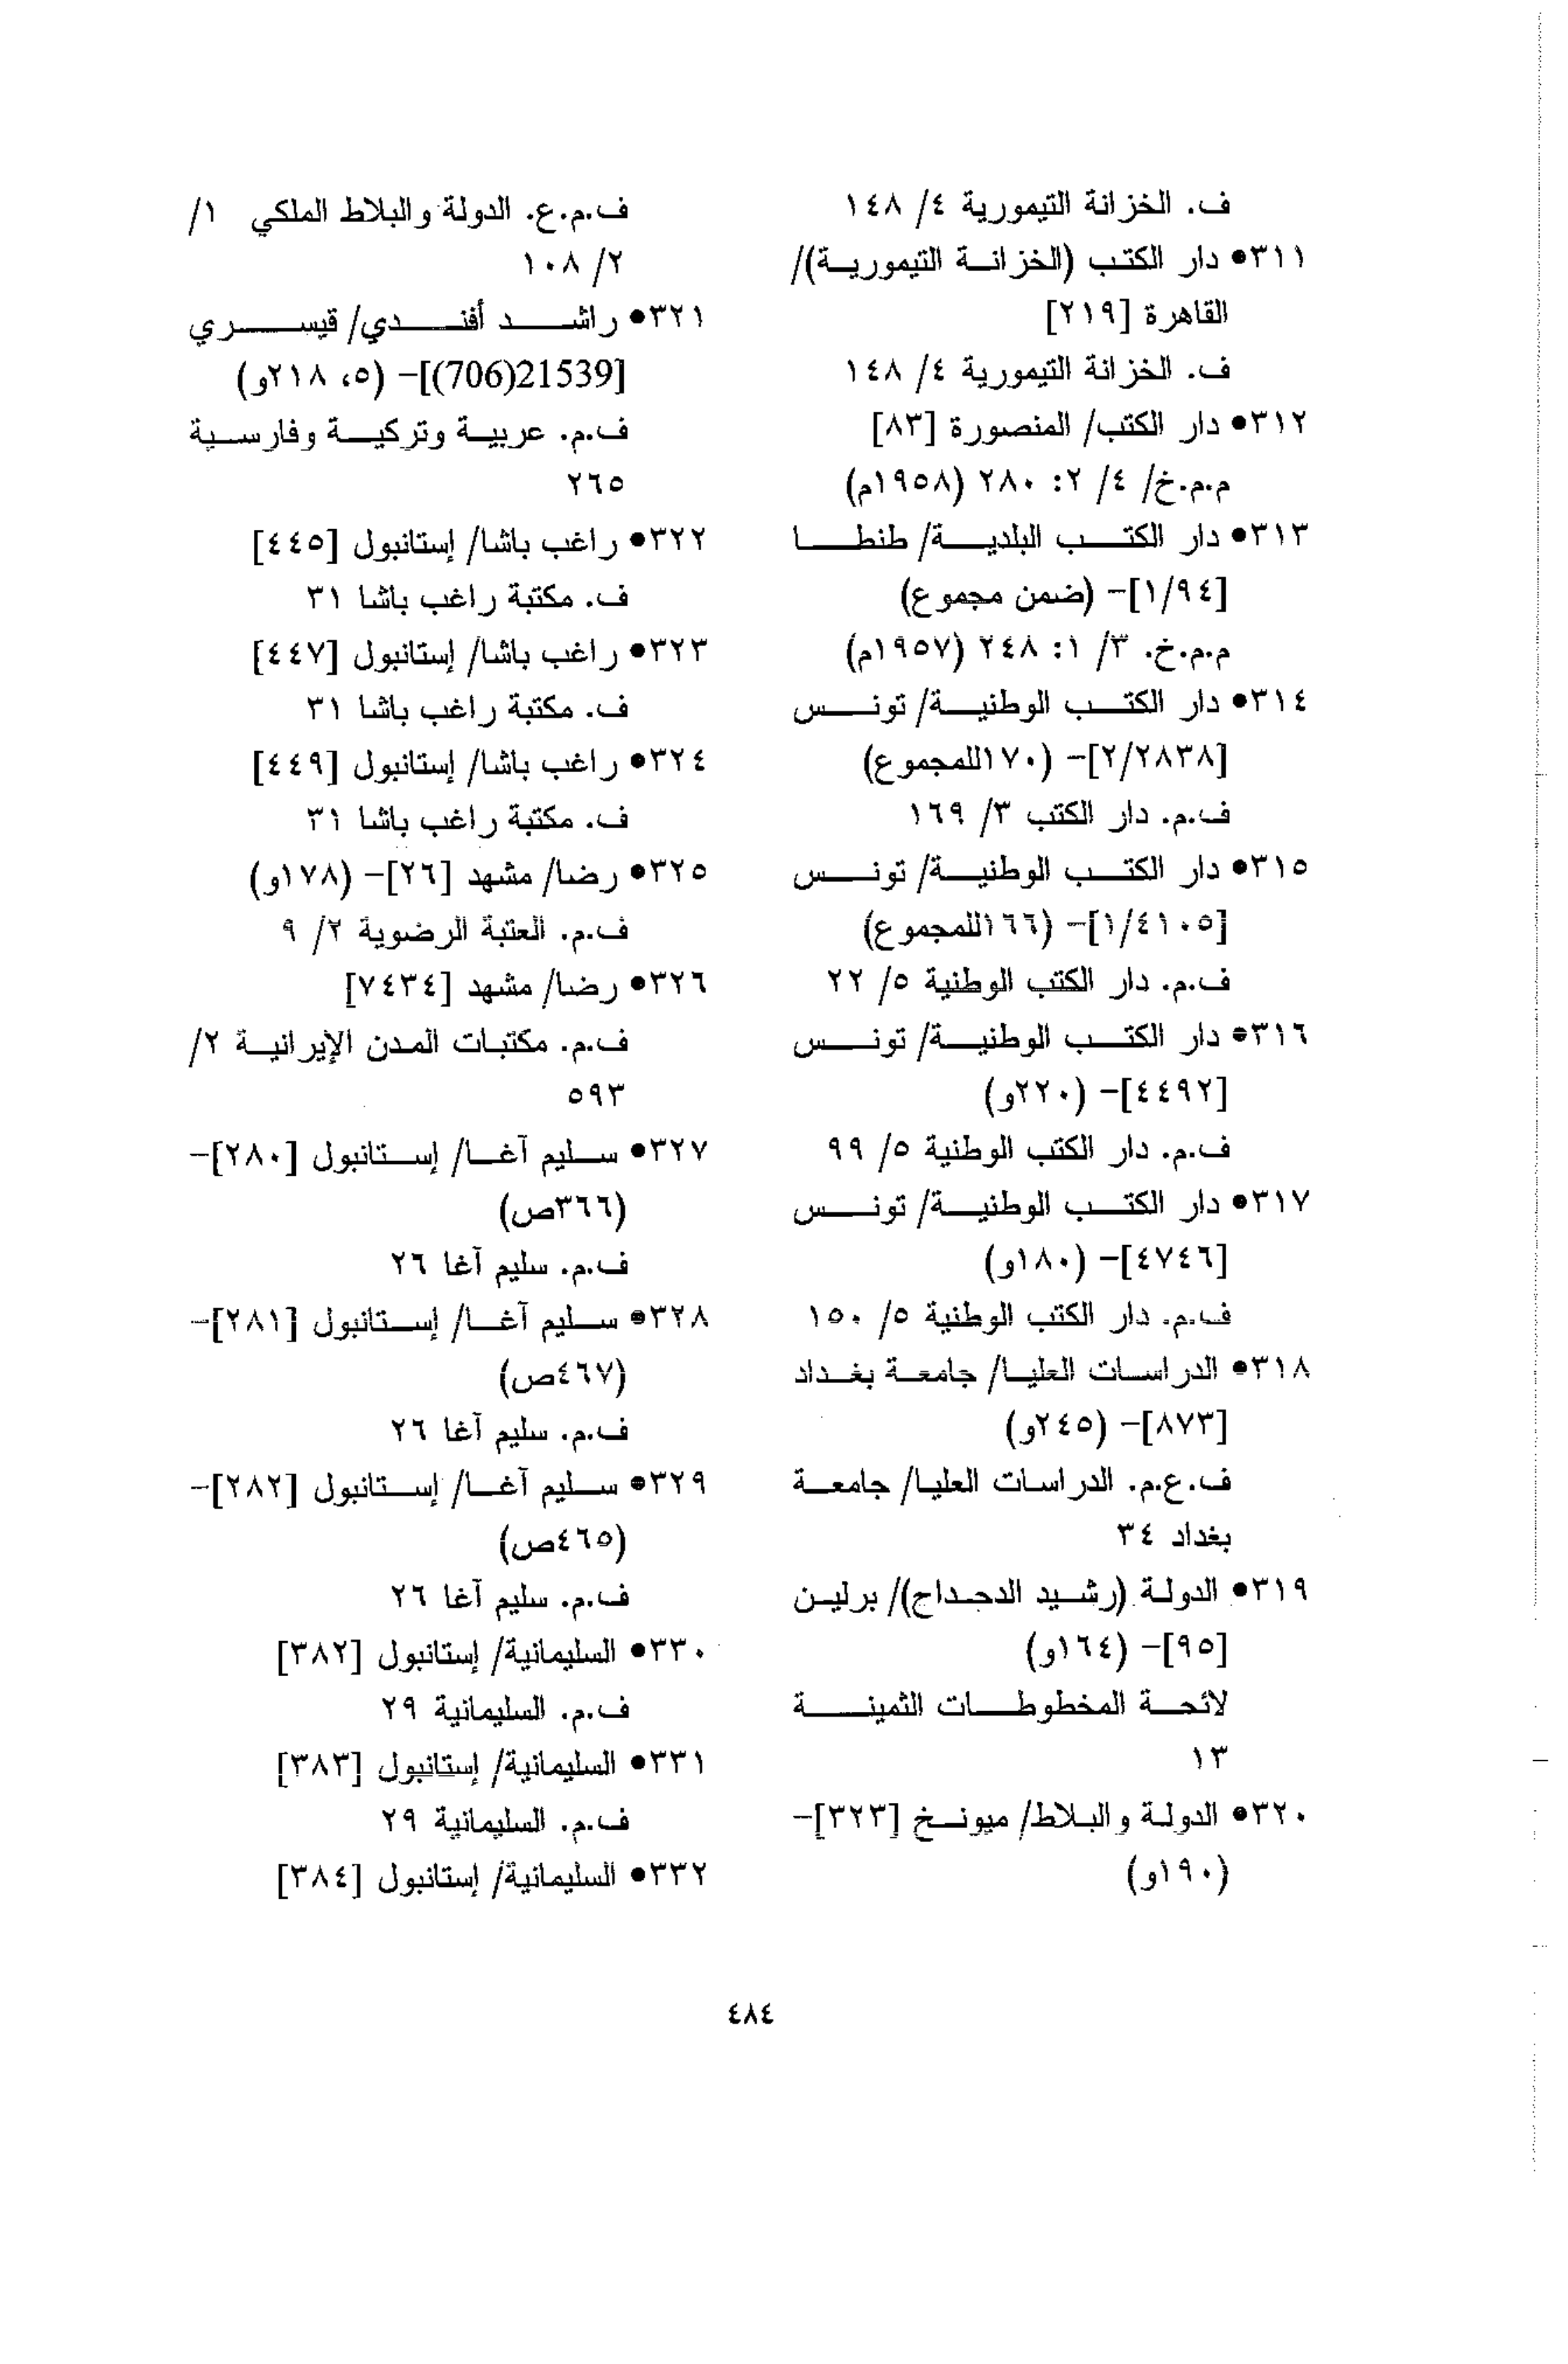 ف. الخزانة التيمورية ٤/ ١٤٨
٣١١• دار الكتب (الخزانة التيمورية)/
القاهرة [٢١٩]
ف. الخزانة التيمورية ٤/ ١٤٨
٣١٢• دار الكتب/ المنصورة [٨٣]
م.م.خ/ ٤/ ٢: ٢٨٠ (١٩٥٨م)
٣١٣• دار الكتب البلدية/ طنطا
[١/٩٤]– (ضمن مجموع)
م.م.خ. ٣/ ١: ٢٤٨ (١٩٥٧م)
٣١٤• دار الكتب الوطنية/ تونس
[٢/٢٨٣٨]– (١٧٠للمجموع)
ف.م. دار الكتب ٣/ ١٦٩
٣١٥• دار الكتب الوطنية/ تونس
[١/٤١٠٥]– (١٦٦للمجموع)
ف.م. دار الكتب الوطنية ٥/ ٢٢
٣١٦• دار الكتب الوطنية/ تونس
[٤٤٩٢]– (٢٢٠و)
ف.م. دار الكتب الوطنية ٥/ ٩٩
٣١٧• دار الكتب الوطنية/ تونس
[٤٧٤٦]– (١٨٠و)
ف.م. دار الكتب الوطنية ٥/ ١٥٠
٣١٨• الدراسات العليا/ جامعة بغداد
[٨٧٣]– (٢٤٥و)
ف.ع.م. الدراسات العليا/ جامعة
بغداد ٣٤
٣١٩• الدولة (رشيد الدحداح)/ برلين
[٩٥]– (١٦٤و)
لائحة المخطوطات الثمينة
١٣
٣٢٠• الدولة والبلاط/ ميونخ [٣٢٣]–
(١٩٠و)
ف.م.ع. الدولة والبلاط الملكي ١/
٢/ ١٠٨
٣٢١• راشد أفندي/ قيسري
[21539(706)]– (٥، ٢١٨و)
ف.م. عربية وتركية وفارسية
٢٦٥
٣٢٢• راغب باشا/ إستانبول [٤٤٥]
ف. مكتبة راغب باشا ٣١
٣٢٣• راغب باشا/ إستانبول [٤٤٧]
ف. مكتبة راغب باشا ٣١
٣٢٤• راغب باشا/ إستانبول [٤٤٩]
ف. مكتبة راغب باشا ٣١
٣٢٥• رضا/ مشهد [٢٦]– (١٧٨و)
ف.م. العتبة الرضوية ٢/ ٩
٣٢٦• رضا/ مشهد [٧٤٣٤]
ف.م. مكتبات المدن الإيرانية ٢/
٥٩٣
٣٢٧• سليم آغا/ إستانبول [٢٨٠]–
(٣٦٦ص)
ف.م. سليم آغا ٢٦
٣٢٨• سليم آغا/ إستانبول [٢٨١]–
(٤٦٧ص)
ف.م. سليم آغا ٢٦
٣٢٩• سليم آغا/ إستانبول [٢٨٢]–
(٤٦٥ص)
ف.م. سليم آغا ٢٦
٣٣٠• السليمانية/ إستانبول [٣٨٢]
ف.م. السليمانية ٢٩
٣٣١• السليمانية/ إستانبول [٣٨٣]
ف.م. السليمانية ٢٩
٣٣٢• السليمانية/ إستانبول [٣٨٤]
٤٨٤